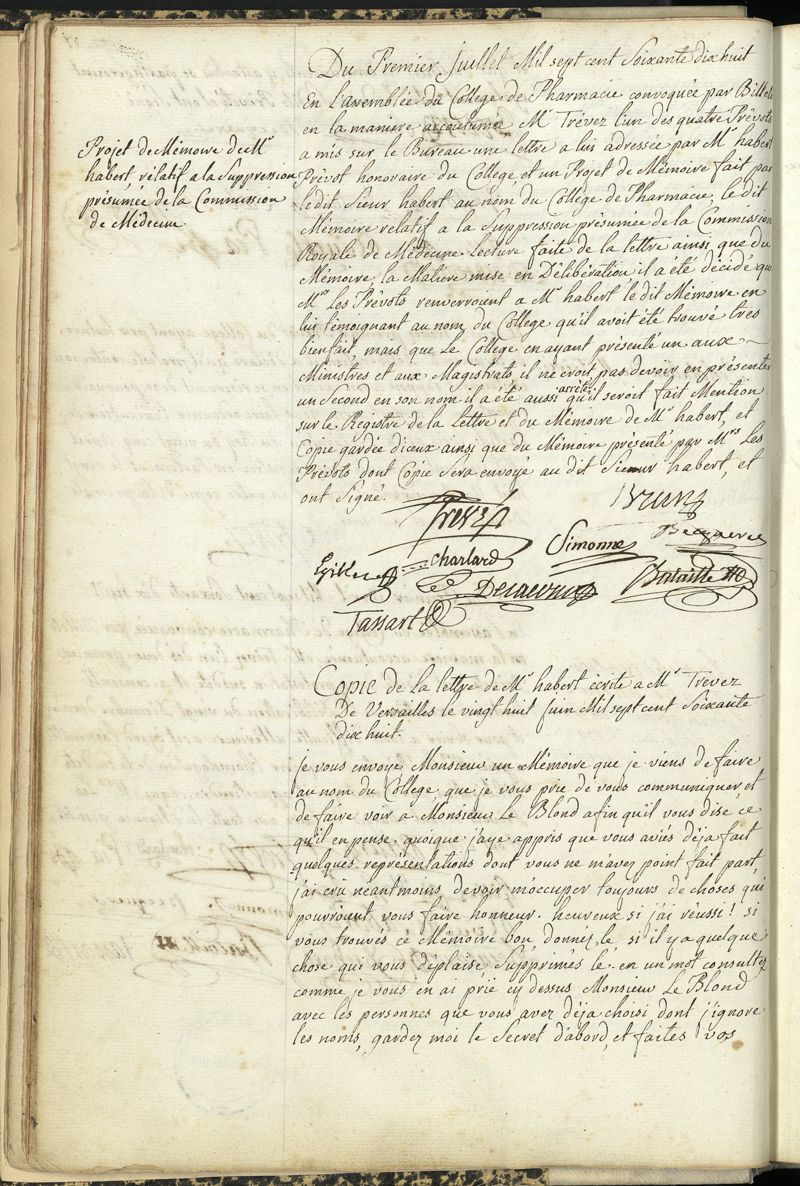 Projet de Mémoire de Mr
habert, rélatif a la Suppression
présumée de la Commission
de Médecine
Du Premier Juillet Mil sept cent Soixante dix huit
En l'assemblée du College de Pharmacie convoquée par Billets
en la maniere accoutumée Mr Trévez l'un des quatre Prévots
a mis sur le Bureau une lettre a lui adressée par Mr habert
Prévot honoraire du College, et un Projet de Mémoire fait par
le dit Sieur habert au nom du College de Pharmacie, le dit
Mémoire relatif a la Suppression présumée de la Commission
Royale de Médecine. Lecture faite de la lettre ainsi que du
Mémoire, la Matiere mise en Délibération il a été décidé que
Mrs Les Prévots renverroient a Mr habert le dit Mémoire en
lui témoignant au nom du College qu'il avoit été trouvé tres
bien fait, mais que Le College en ayant présenté un aux
Ministres et aux Magistrats il ne croit pas devoir en présenter
un Second en son nom il a été aussi arrêté qu'il seroit fait Mention
sur le Registre de la Lettre et du Mémoire de Mr habert, et
Copie gardée d'iceux ainsi que du Mémoire présenté par Mrs Les
Prévots dont Copie Sera envoyé au dit Sieur habert, et
ont Signé.
Trevez Brun
Simonne Becqueret
Charlard
Bataille
Tassart
Copie de la lettre de Mr habert écrite a Mr Trevez
De Versailles le vingt huit Juin Mil sept cent Soixante
dix huit.
je vous envoye Monsieur un Mémoire que je viens de faire
au nom du College, que je vous prie de vous communiquer, et
de faire voir a Monsieur Le Blond afin qu'il vous dise ce
qu'il en pense. quoique j'aye appris que vous aviés déja fait
quelques représentations dont vous ne m'avez point fait part,
j'ai crû néantmoins devoir m'occuper toujours de choses qui
pourroient vous faire honneur. heureux si j'ai réussi! si
vous trouvés cé Mémoire bon, donnez le, si il y a quelque
chose qui vous déplaise Supprimes le. en un mot consultez
comme je vous en ai prié cy dessus Monsieur Le Blond
avec les personnes que vous avez déja choisi dont j'ignore
les noms, gardez moi le Secret d'abord, et faites vos